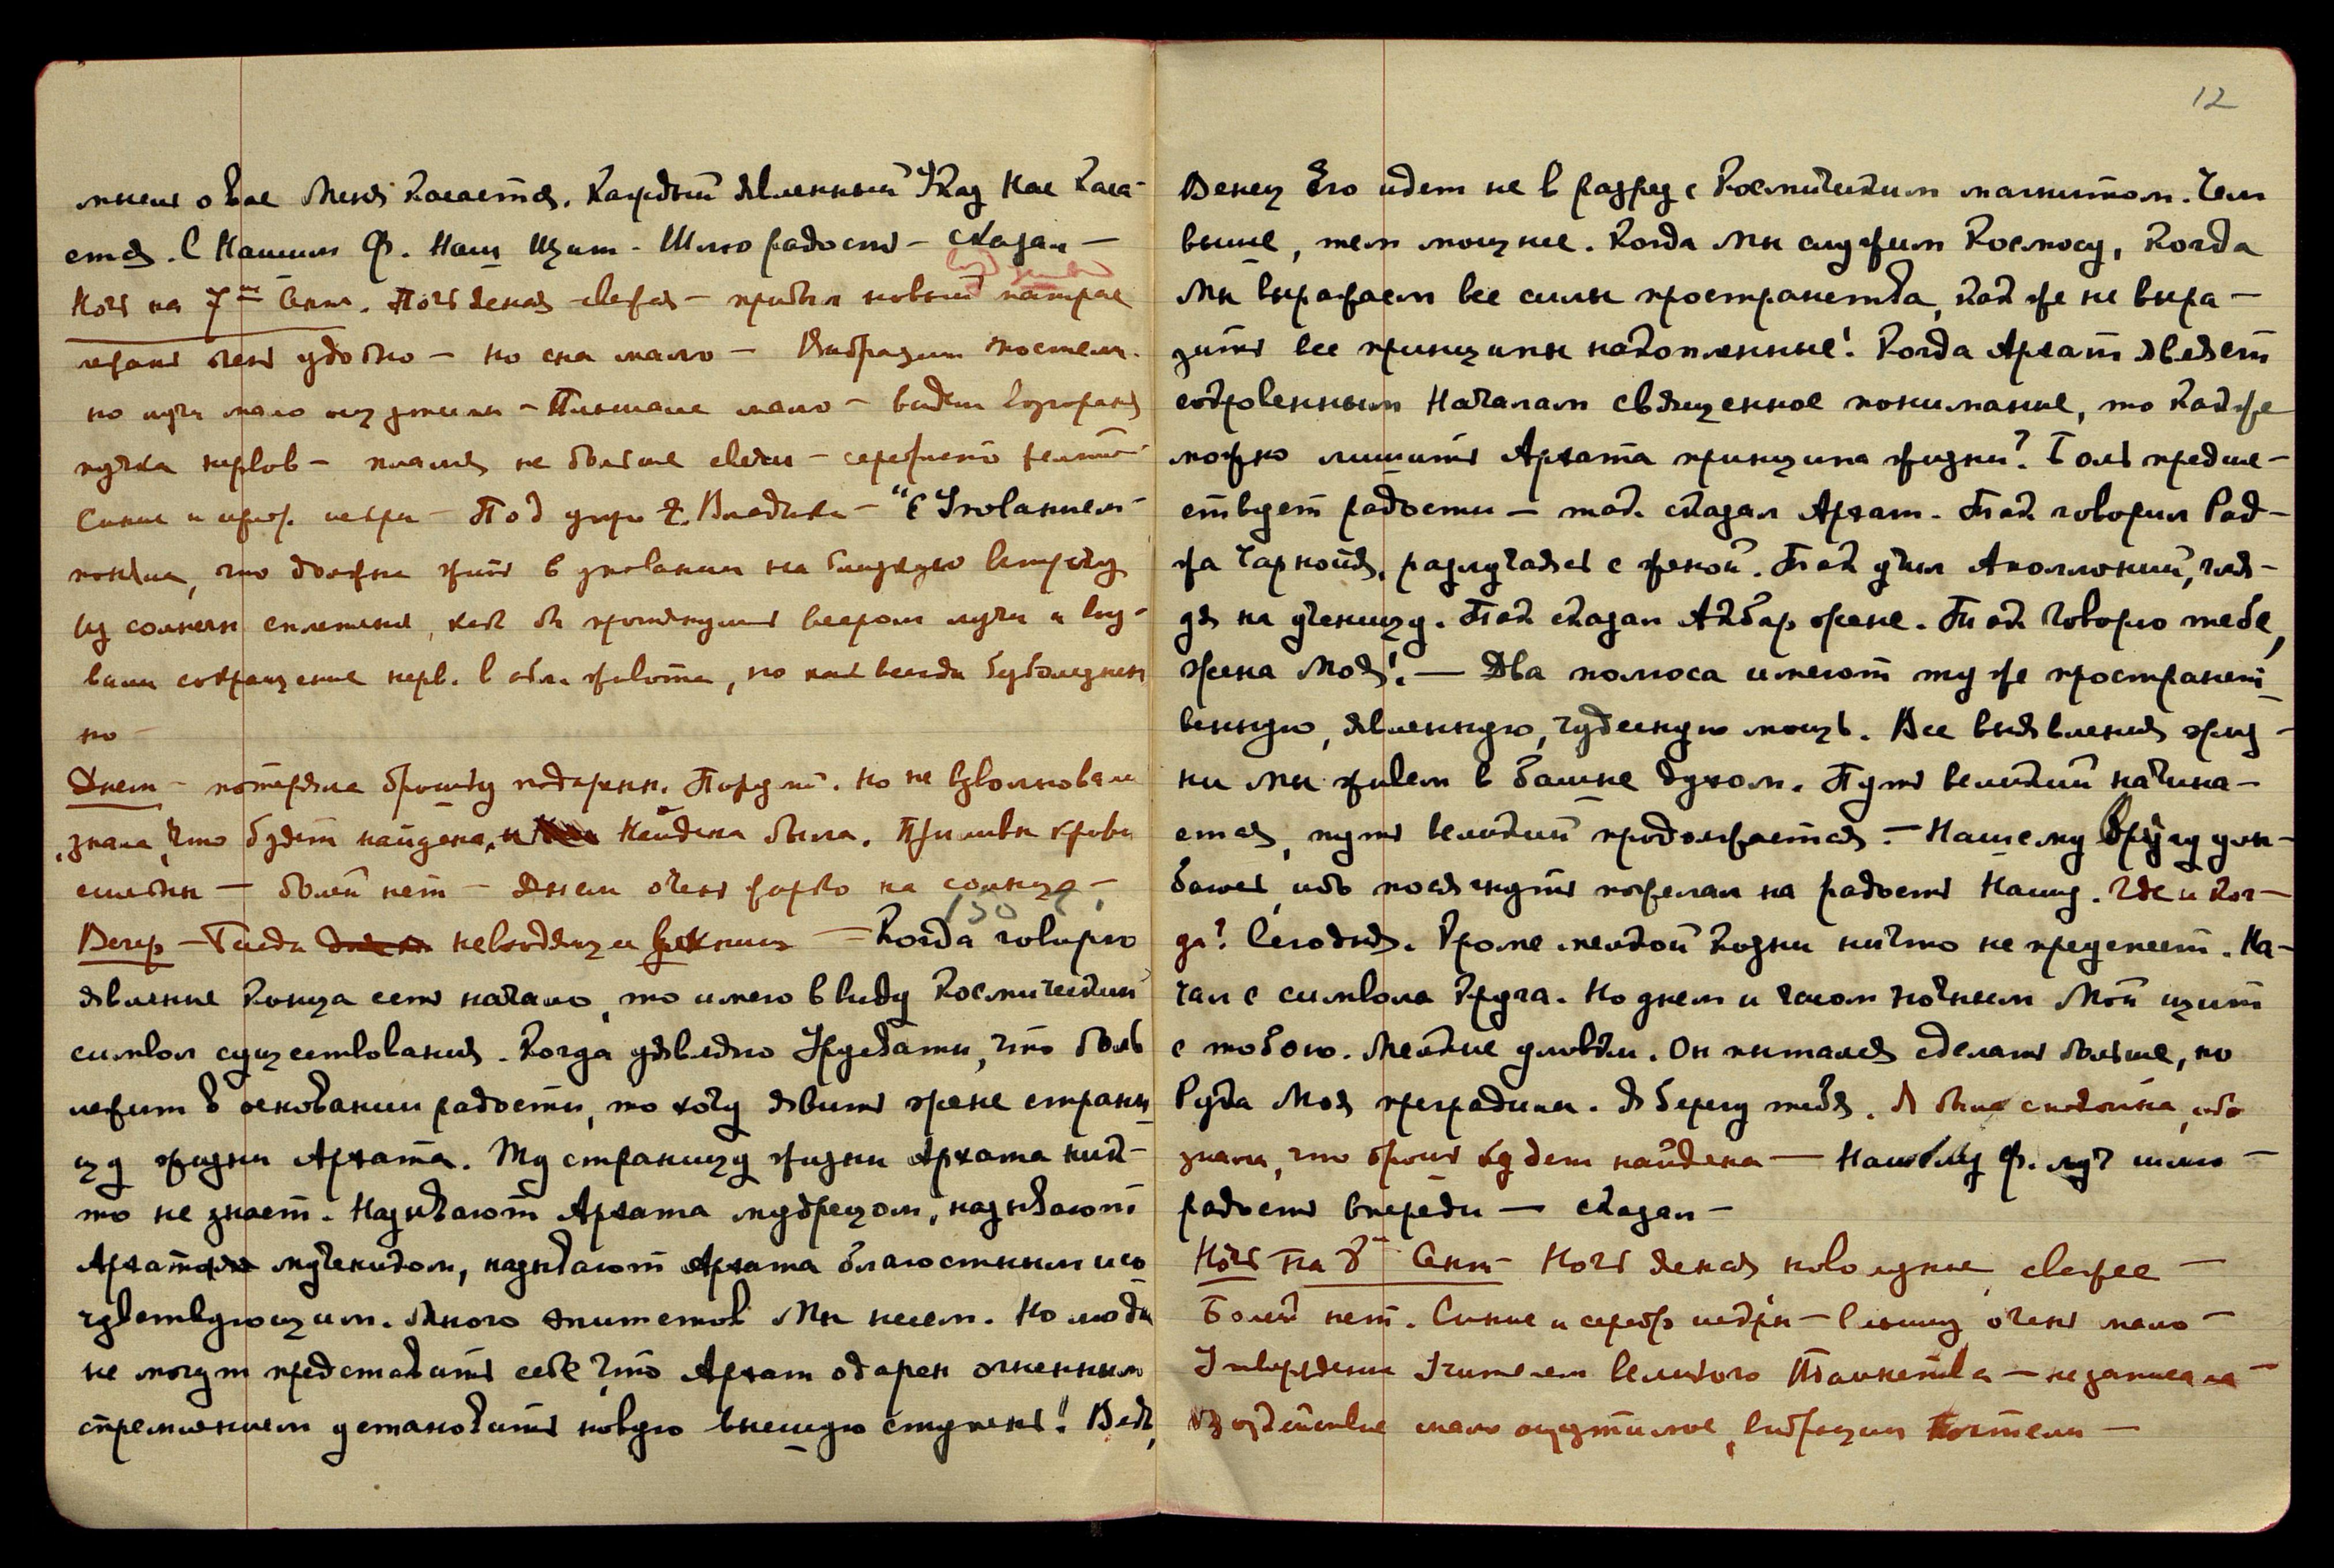 мнении о Вас Меня касается. Каждый явленный Указ Нас каса-
ется. С Нашим Ф. Наш Щит. Шлю радость – сказал –
Ночь на 7ое Сент. Ночь ясная свежая – прибыл новый матрас
лежать очень удобно – но сна мало – Вибрации постели.
но лучи мало ощутимы – Пышане мало – видела возгорание
пучка нервов – пламя не больше свечи – серебристо
Синие и искры – Под утро Г. Владыки – "С Упованием –
поняла, что должны жить в уповании на близкую встречу
Из солнечн сплетения, как бы протянулись веером лучи и выз-
вали сокращение нерв. в обл. живота, но как всегда безболезнен
но –
Днем – потеряла брошку подаренн. Порумой. но не взволновал
знала, что будет найдена, и Найдена была. Приливы крови
слабы – болей нет – Днем очень жарко на солнце –
130
Вечер – Беседа – Когда говорю
явление Конца есть начало, то имею в виду Космический
символ существования. Когда уявляю Урусвати, что боль
лежит в основании радости, то хочу явить жене страни
цу жизни Архата. Ту страницу жизни Архата ник-
то не знает. Называют Архата мудрецом, называют
Архата мучеником, называют Архата благостным и со
чувствующим. Много эпитетов Мы несем. Но люди
не могут представить себе что Архат одарен огненным
стремлением установить новую высшую ступень! Ведь,
12
Венец Его идет не в разрез с Космическим магнитом. Чем
выше, тем мощнее. Когда Мы служим Космосу, когда
Мы выражаем все силы пространства, как же не выра –
зить все принципы накопленные! Когда Архат являет
сокровенным Началам священное понимание, то как же
можно лишить Архата принципа жизни? Боль предше –
ствует радости – так сказал Архат. Так говорил Рад –
жа Чарнойя, разлучаясь с женой. Так учил Аполлоний, гля –
дя на ученицу. Так сказал Акбар жене. Так говорю тебе,
жена Моя! – Два полюса имеют ту же пространст
венную, явленную, чудесную мощь. Все выявления жиз –
ни мы живем в башне духом. Путь великий начина –
ется, путь великий продолжается. – Нашему Другу улы –
баюсь, ибо посягнуть пожелал на радость Нашу. Где и ког –
да? Сегодня. Кроме мелкой козни ничто не преуспеет. На –
чал с символа Круга. Но днем и часом ночным Мой щит
с тобою. Мелкие уловки. Он пытался сделать больше, но
Рука Моя преградила. Я берегу тебя. Я была спокойна, ибо
знала, что брошь будет найдена – Нашему Ф. луч шлю –
радость впереди – сказал –
Ночь на 8ое Сент – Ночь ясная новолуние, свежее –
Болей нет. Синие и серебр искры – Слышу очень мало –
Утверждение Учителем Великого Таинства – не записала –
Воздействие мало ощутимое, вибрации постели –